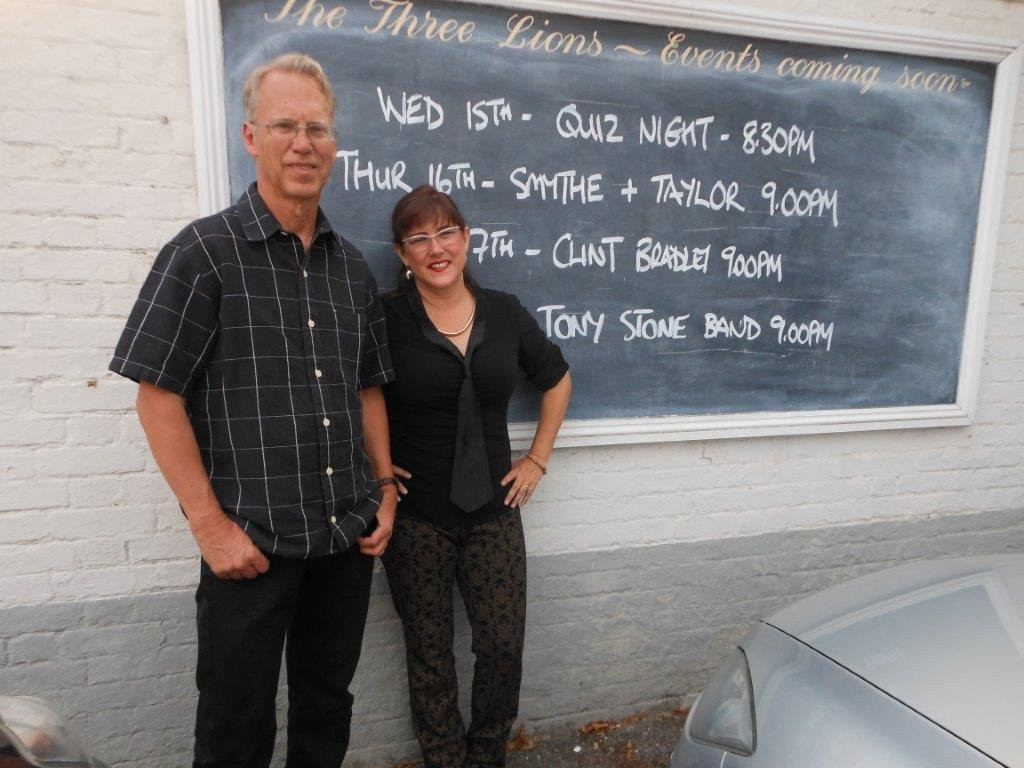 The Three Lions ~ Events coming soon~
WED 15TH - QUIZ NIGHT - 8.30PM
THUR 16TH - SMYTHE + TAYLOR 9.00PM
7TH - CLINT BRADLEY 9.00PM
TONY STONE BAND 9.00PM